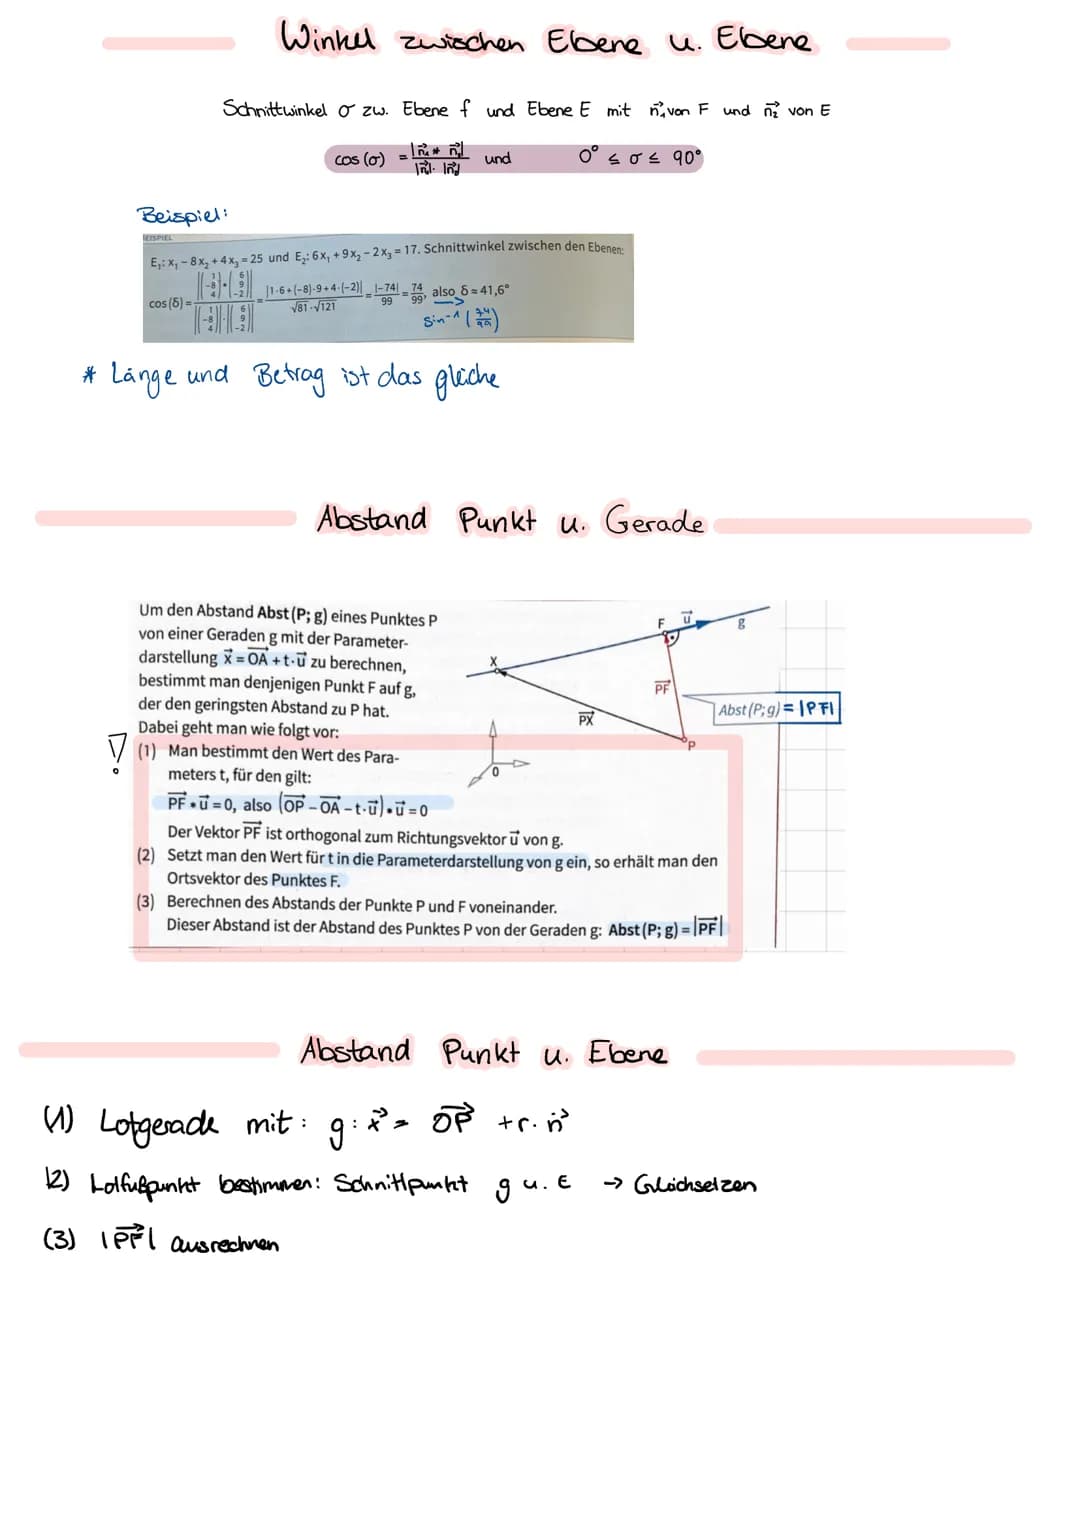 Winkel zwischen Ebene u. Ebene
Schnittwinkel σ zw. Ebene f und Ebene E mit n₁⃗ von F und n₂⃗ von E
cos(σ) = |n₁⃗ * n₂⃗| / |n₁⃗|·|n₂⃗| und 0° ≤ σ ≤ 90°
Beispiel:
BEISPIEL
E₁: x₁ – 8x₂ + 4x₃ = 25 und E₂: 6x₁ + 9x₂ – 2x₃ = 17. Schnittwinkel zwischen den Ebenen:
cos(δ) = |(1 -8 4)•(6 9 -2)| / |(1 -8 4)|·|(6 9 -2)| = |1·6+(-8)·9+4·(-2)| / √81·√121 = |-74| / 99 = 74/99, also δ ≈ 41,6°
sin⁻¹ (74/99)
* Länge und Betrag ist das gleiche
Abstand Punkt u. Gerade
Um den Abstand Abst(P; g) eines Punktes P
von einer Geraden g mit der Parameter-
darstellung x⃗ = OA⃗ + t·u⃗ zu berechnen,
bestimmt man denjenigen Punkt F auf g,
der den geringsten Abstand zu P hat.
Dabei geht man wie folgt vor:
(1) Man bestimmt den Wert des Para-
meters t, für den gilt:
PF⃗ • u⃗ = 0, also (OP⃗ – OA⃗ – t·u⃗) • u⃗ = 0
Der Vektor PF⃗ ist orthogonal zum Richtungsvektor u⃗ von g.
(2) Setzt man den Wert für t in die Parameterdarstellung von g ein, so erhält man den
Ortsvektor des Punktes F.
(3) Berechnen des Abstands der Punkte P und F voneinander.
Dieser Abstand ist der Abstand des Punktes P von der Geraden g: Abst(P; g) = |PF⃗|
F u⃗ g
X
PF⃗
PX⃗
Abst(P; g) = |PF|
P
0
!
Abstand Punkt u. Ebene
(1) Lotgerade mit: g: x⃗ = OP⃗ + r·n⃗
(2) Lotfußpunkt bestimmen: Schnittpunkt g u. E → Gleichsetzen
(3) |PF⃗| ausrechnen